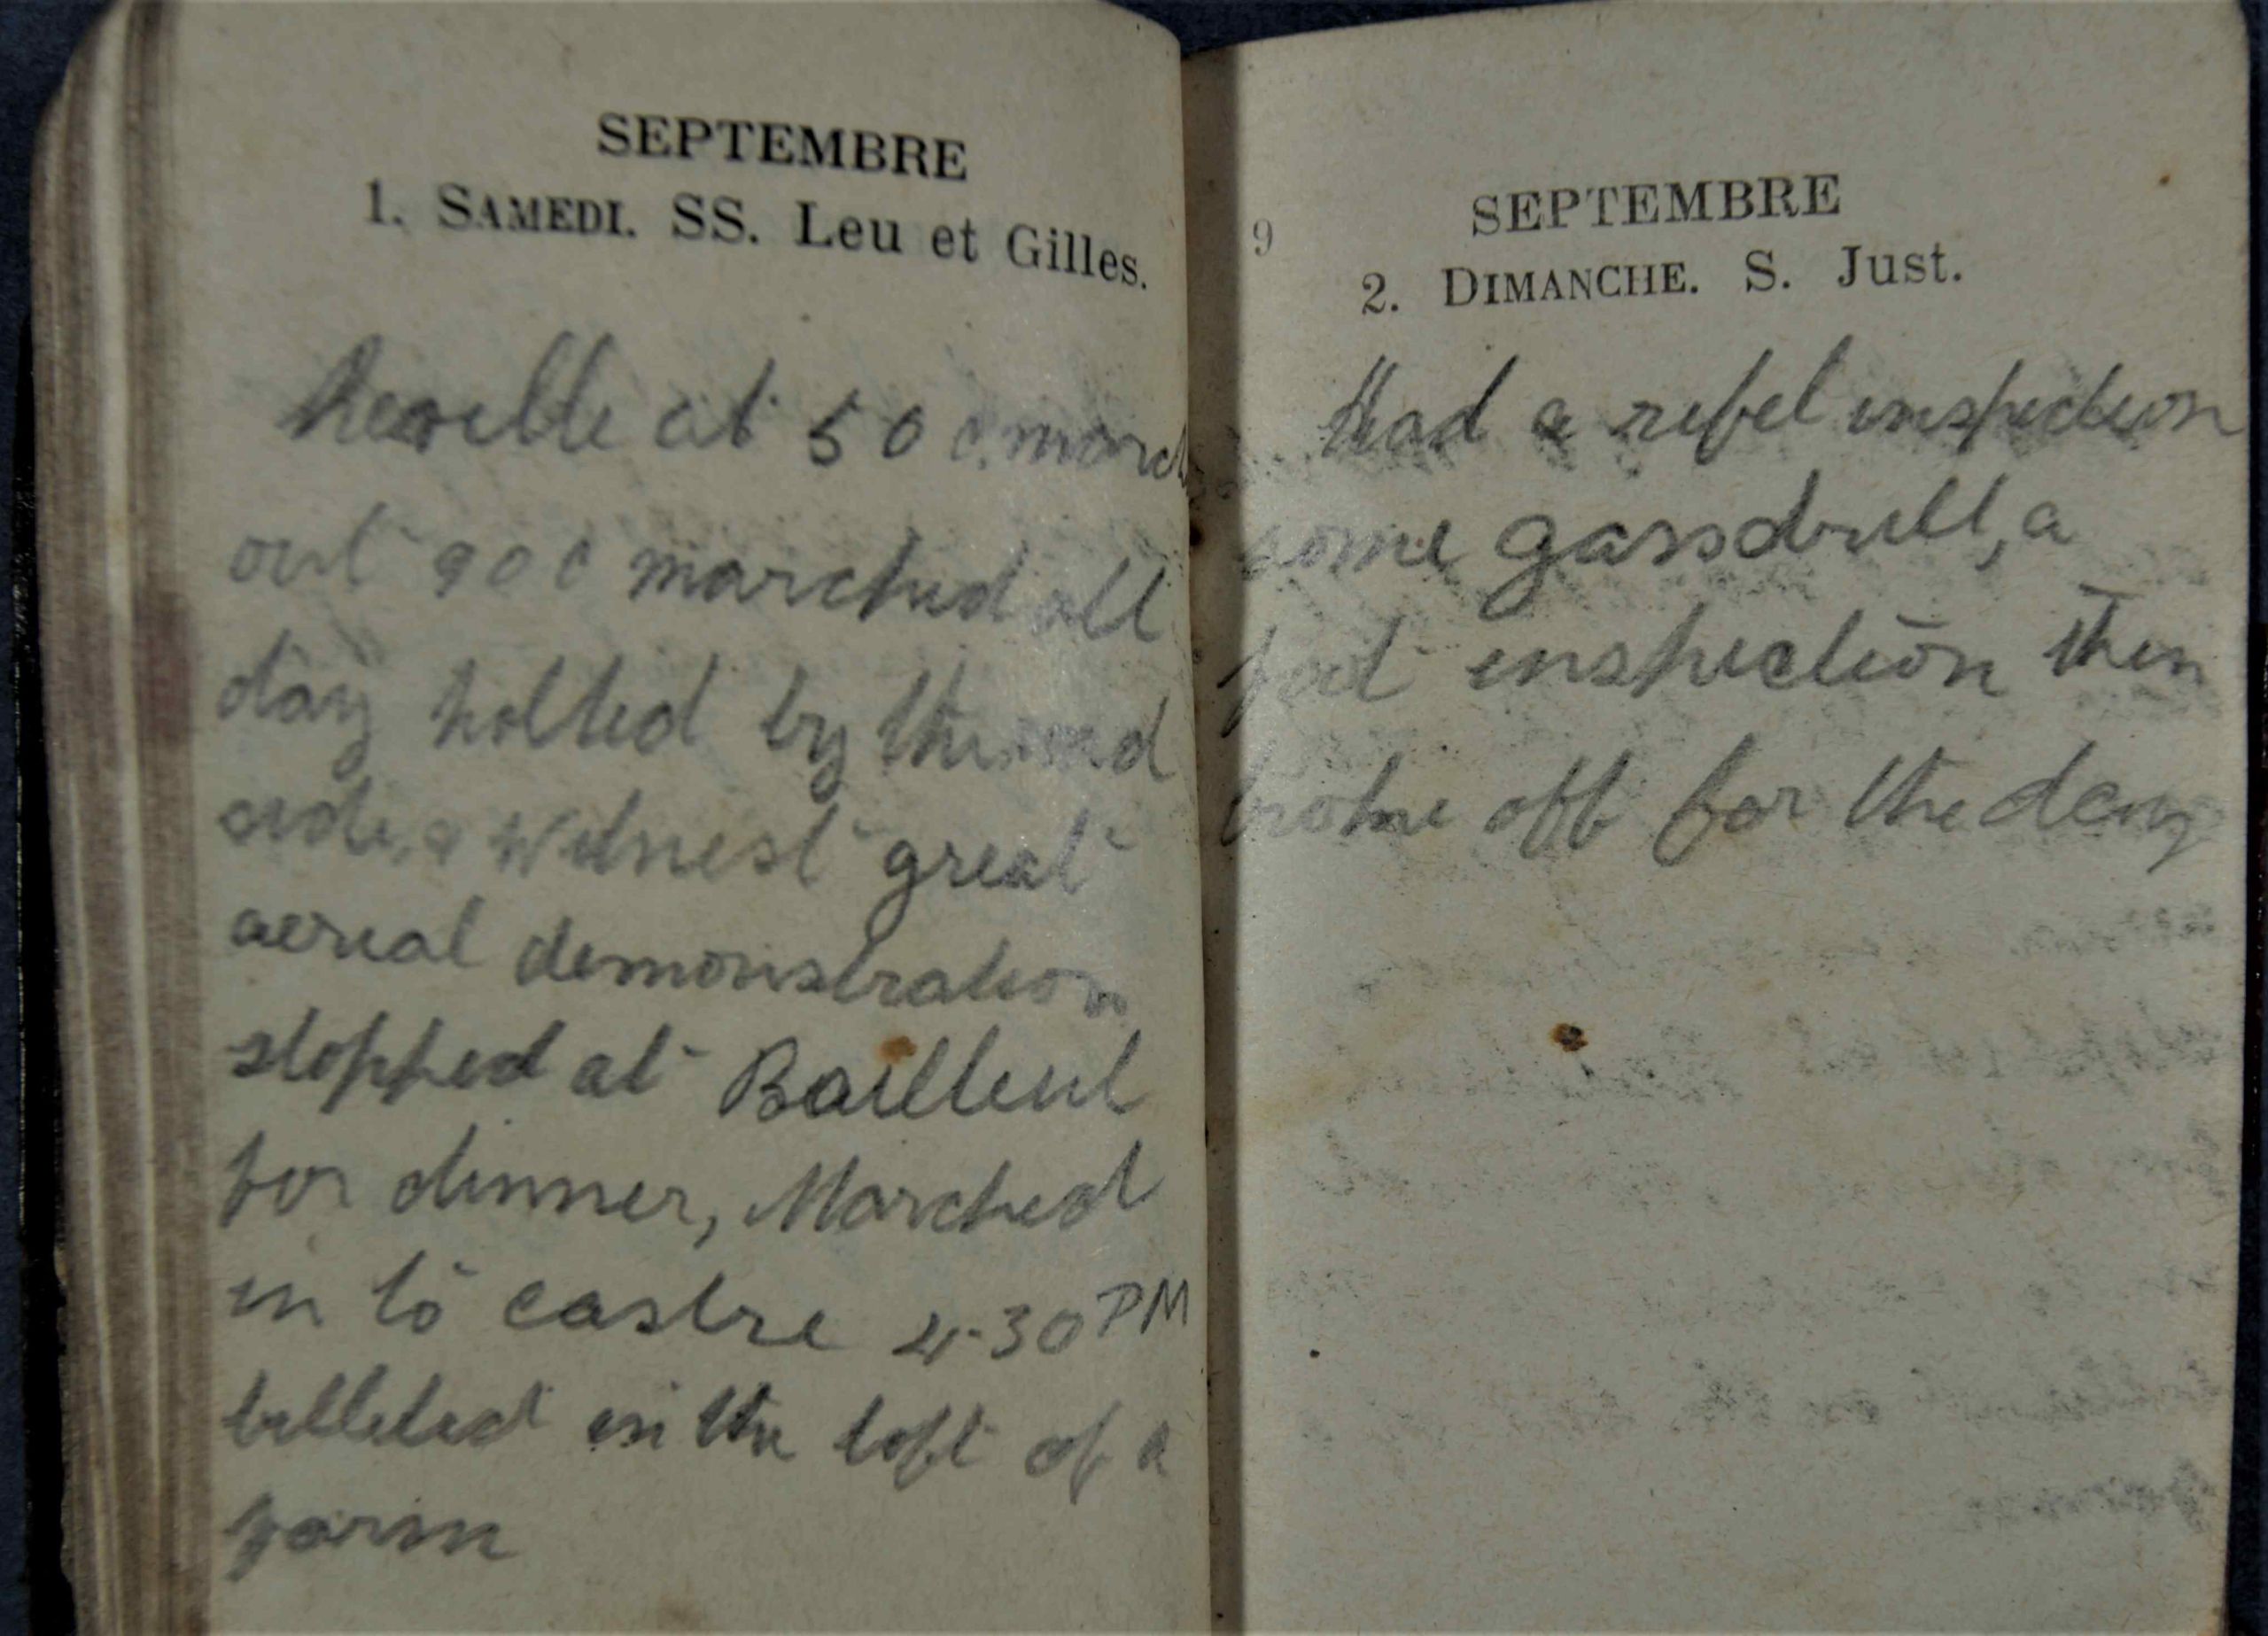 SEPTEMBRE
1. SAMEDI. SS. Leu et Gilles.
Reveille at 5 0 0. march
out 9 0 0 marched all
day holted by the road
side, a witnest great
aerial demonstration
stopped at Bailleul
for dinner, Marched
in to castre 4-30 PM
billeted in the loft of a
farm
9
SEPTEMBRE
2. DIMANCHE. S. Just.
Had a rifel inspection
some gassdrill, a
foot inspection then
broke off for the day